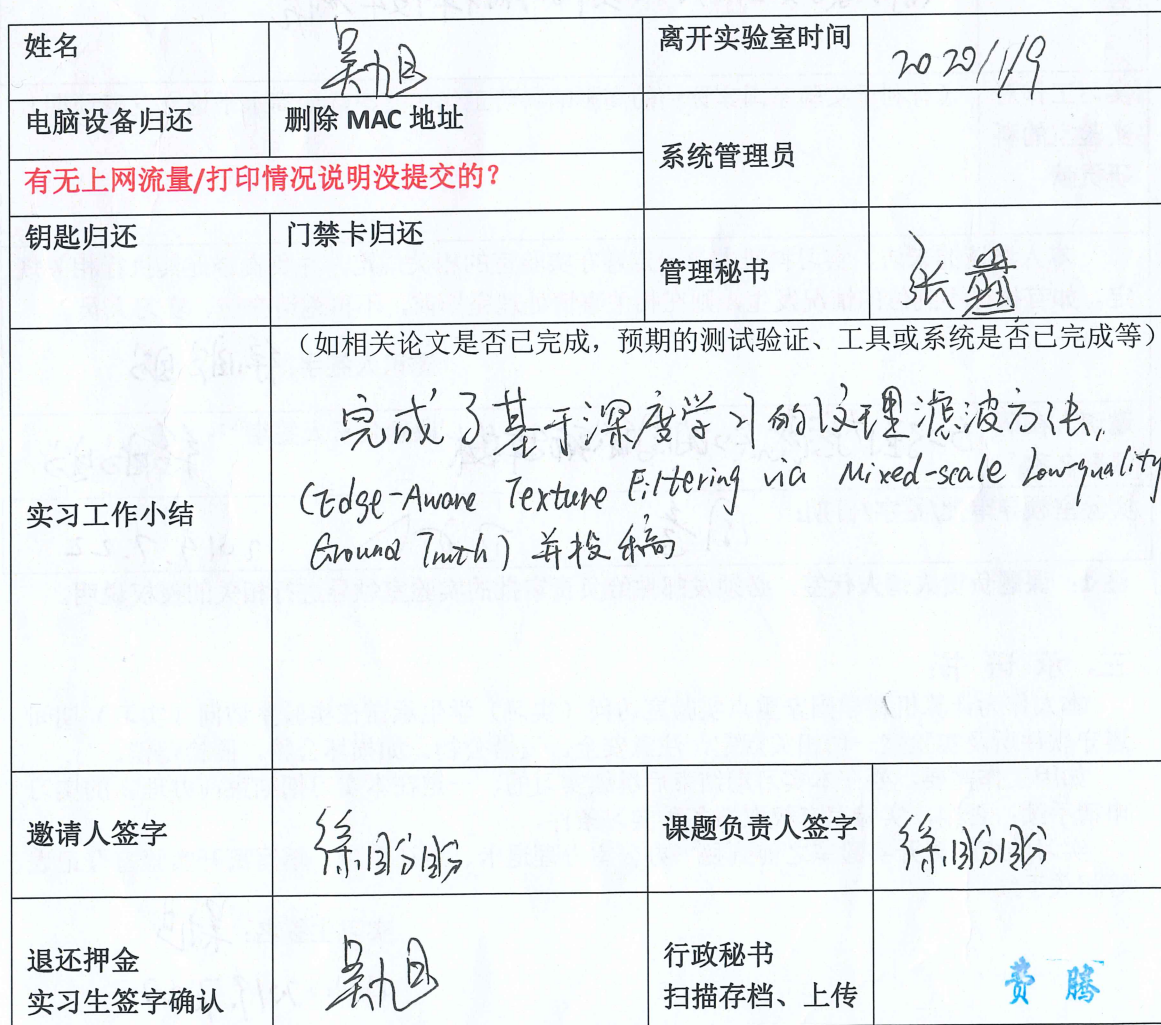 姓名
吴旭
离开实验室时间
2020/1/9
电脑设备归还
删除 MAC 地址
系统管理员
有无上网流量/打印情况说明没提交的?
钥匙归还
门禁卡归还
管理秘书
张
实习工作小结
(如相关论文是否已完成,预期的测试验证、工具或系统是否已完成等)
完成了基于深度学习的纹理滤波方法,
(Edge-Aware Texture Filtering via Mixed-scale Low-quality
Ground Truth) 并投稿
邀请人签字
徐
课题负责人签字
徐
退还押金
实习生签字确认
吴旭
行政秘书
扫描存档、上传
费腾